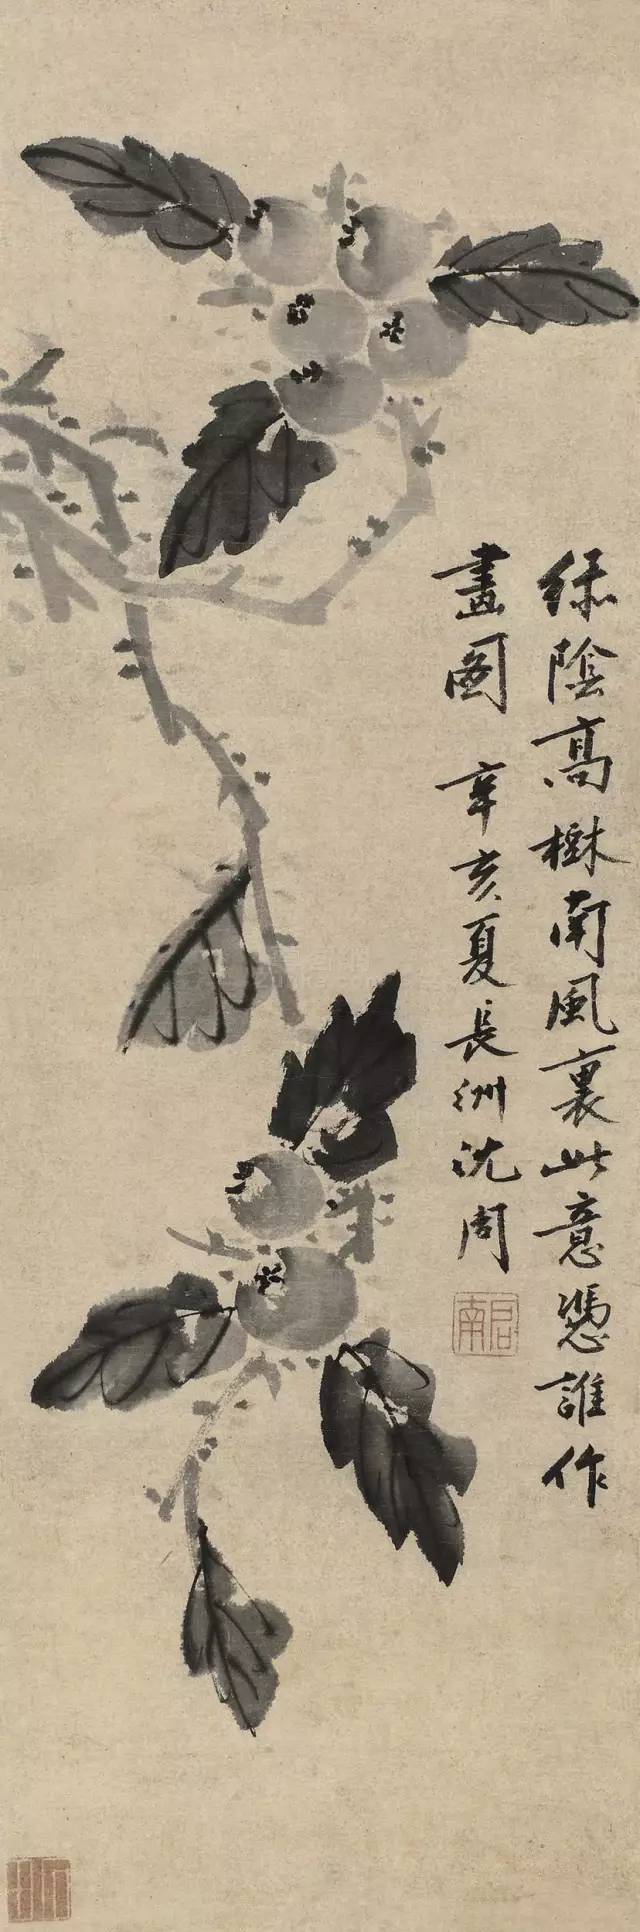 緑陰高樹南風裏此意憑誰作
畫圖 辛亥夏長洲沈周
啟南